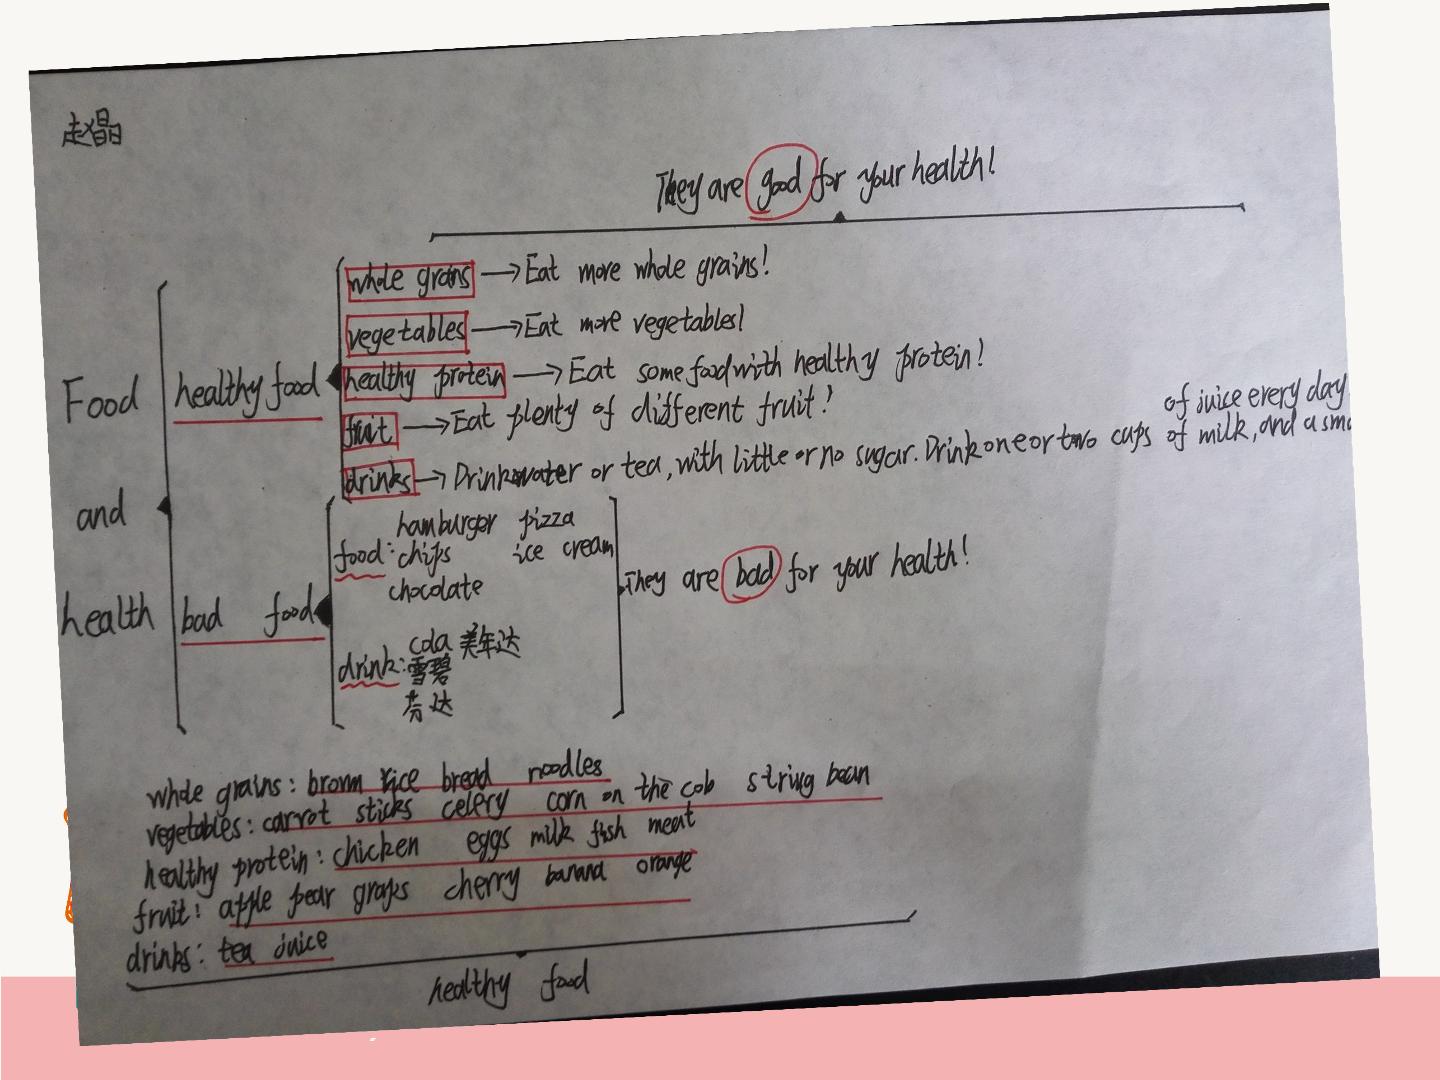 赵晶
They are good for your health!
whole grans → Eat more whole grains!
vegetables → Eat more vegetables!
healthy protein → Eat some food with healthy protein!
fruit → Eat plenty of different fruit!
of juice every day.
drinks → Drink water or tea, with little or no sugar. Drink one or two cups of milk, and a sma
Food and health
healthy food
bad food
food: hamburger pizza
chips ice cream
chocolate
drink: cola 美年达
雪碧
芬达
They are bad for your health!
whole grains: brown rice bread noodles
vegetables: carrot sticks celery corn on the cob string bean
healthy protein: chicken eggs milk fish meat
fruit: apple pear graps cherry banana orange
drinks: tea juice
healthy food